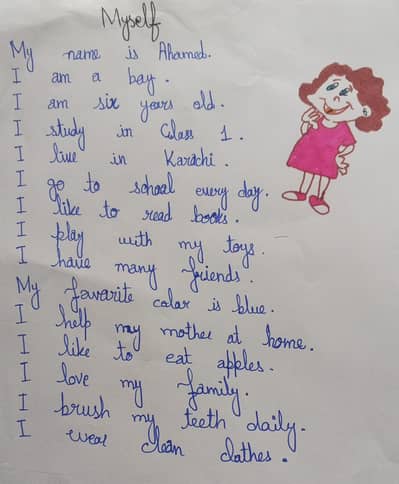 Myself
My name is Ahamed.
I am a boy.
I am six years old.
I study in Class 1.
I live in Karachi.
I go to school every day.
I like to read books.
I play with my toys.
I have many friends.
My favarite color is blue.
I help my mother at home.
I like to eat apples.
I love my family.
I brush my teeth daily.
I wear clean clothes.